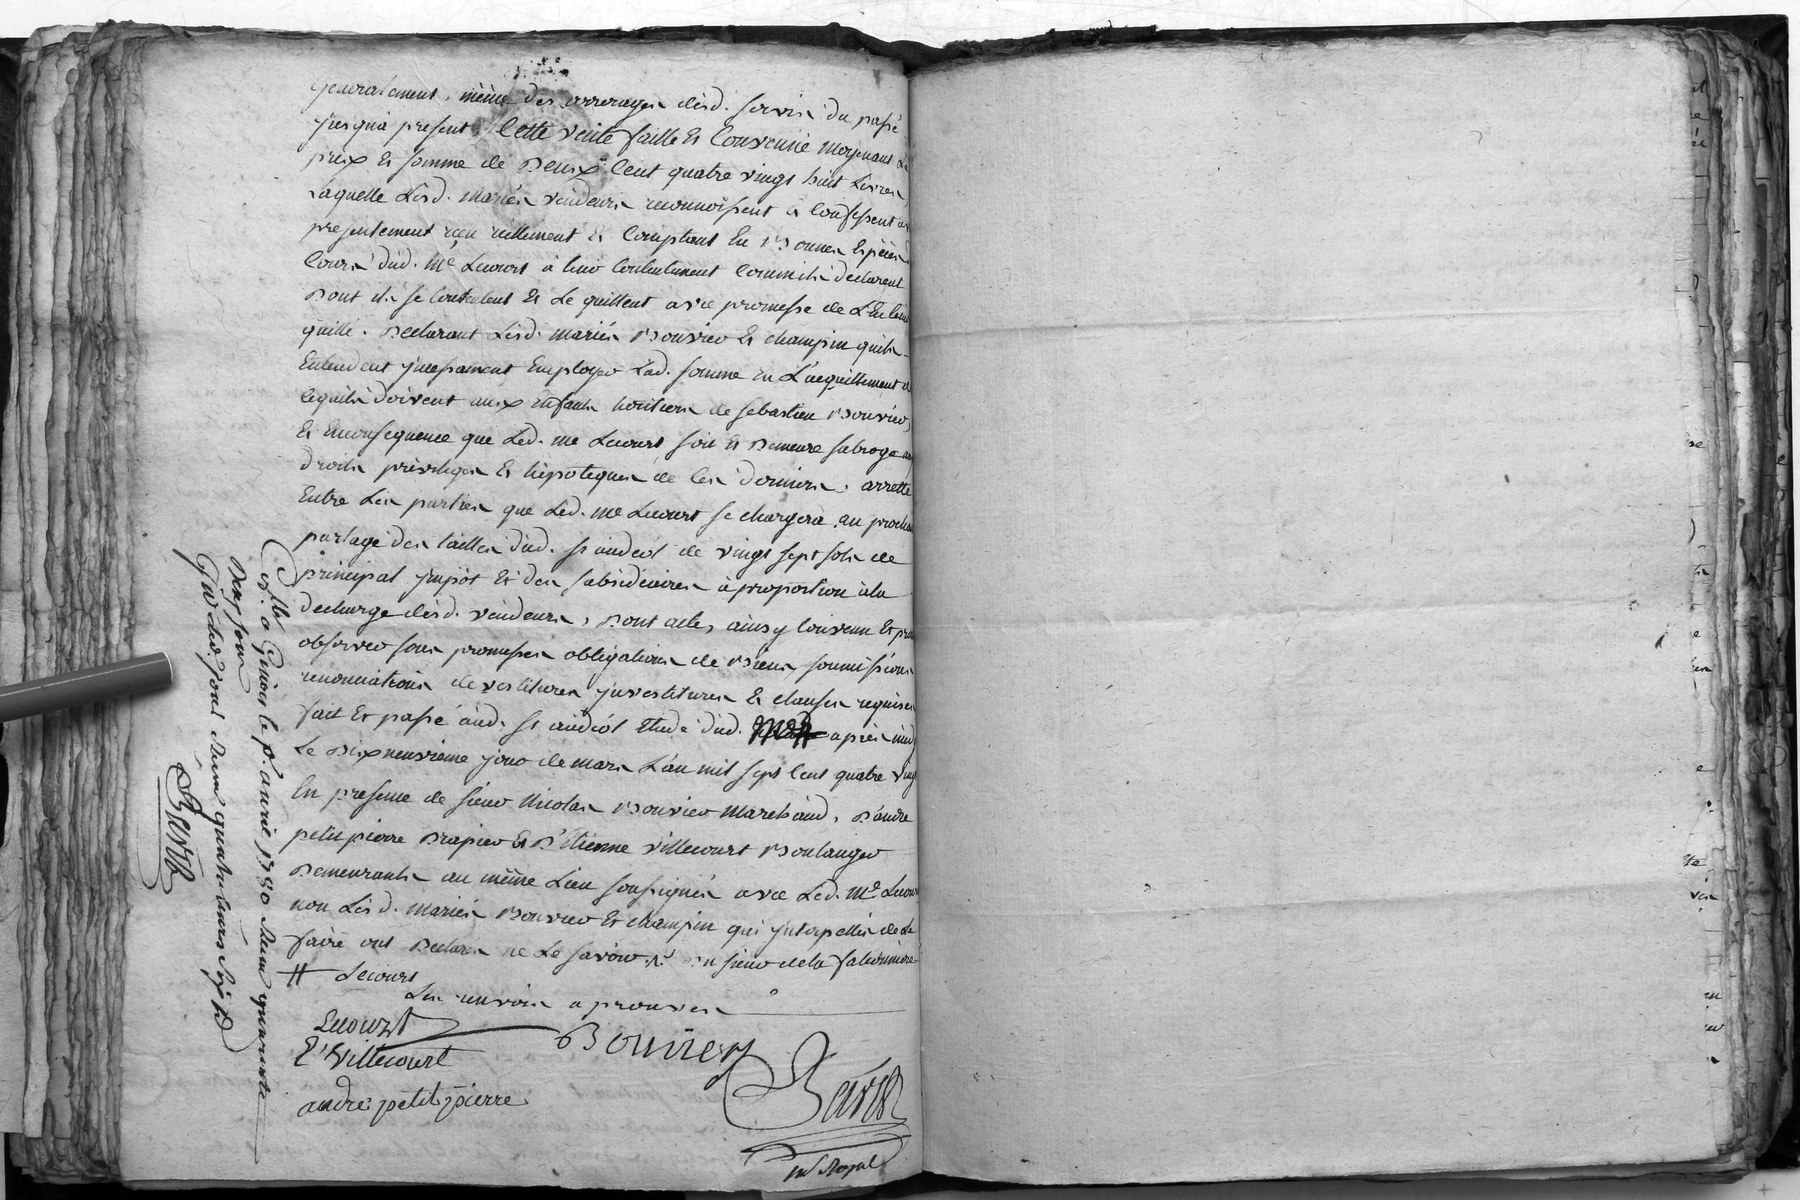 generalement, même des arrerages desd. servis du passé
jusqu'a present, Cette vente faitte et Convenüe moyenant Le
prix et somme de Deux Cent quatre vingt huit Livres
Laquelle Lesd. mariés vendeurs reconnoissent et Confessent
presentement reçu réellement et Comptant En Bonnes Espèces
Cours dud. Me Lecourt à leur Contentement Comm'ils déclarent
Dont ils se Contentent et Le quittent avec promesse de L'En tenir
quitte. Déclarant Lesd. mariés Bouvier et champin qu'ils
Entendent jncessament Employer Lad. somme En L'acquittement de
ce qu'ils doivent aux Enfants héritiers de sebastien Bouvier,
Et En consequence que Led. me Lecourt soit et Demeure subrogé aux
droits privileges et hÿpoteques de Ces derniers. arretté
Entre Les parties que Led. me Lecourt se chargera au prochain
partage des tailles dud. st andéol de vingt sept sols de
principal jmpôt et des subsidiaires à proportion à la
decharge desd. vendeurs, Dont acte, ainsy Convenu et promis
observer sous promesses obligations de Biens soumissions
renonciations devestitures jnvestitures et clauses requises
fait et passé aud. st andéol Etude dud. après midy
Le Dixneuvieme jour de mars L'an mil sept Cent quatre vingt
En presence de sieur Nicolas Bouvier Marchand, D'andré
petit pierre Drapier et D'Etienne villecourt Boulanger
Demeurants au même Lieu soussignés avec Led. Me Lecourt
non Lesd. mariés Bouvier et champin qui jnterpellés de Le
faire ont Déclaré ne Le savoir sieur de la
# Lecourt
Les renvois approuvés
Lecourt
E' Villecourt
Bouvier
andré petit pierre
nre Royal
Cllé a Givors le pr. avril 1780 Reçu quarante
Deux sous